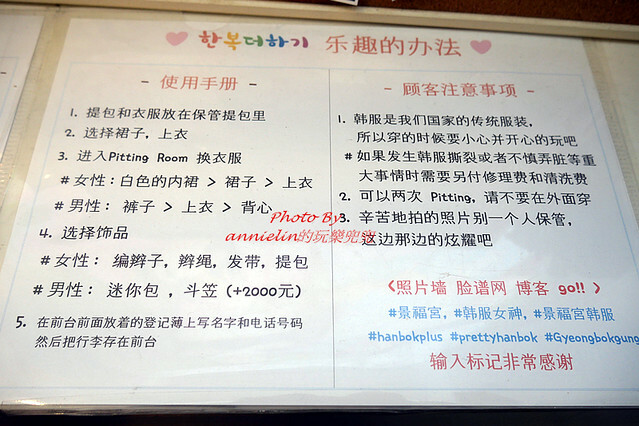 한복더하기 乐趣的办法
- 使用手册 -
1. 提包和衣服放在保管提包里
2. 选择裙子，上衣
3. 进入Pitting Room 换衣服
# 女性：白色的内裙 > 裙子 > 上衣
# 男性： 裤子 > 上衣 > 背心
4. 选择饰品
# 女性： 编辫子，辫绳，发带，提包
# 男性： 迷你包 ，斗笠 (+2000元)
5. 在前台前面放着的登记薄上写名字和电话号码
然后把行李存在前台
- 顾客注意事项 -
1. 韩服是我们国家的传统服装，
所以穿的时候要小心并开心的玩吧
# 如果发生韩服撕裂或者不慎弄脏等重
大事情时需要另付修理费和清洗费
2. 可以两次 Pitting, 请不要在外面穿
3. 辛苦地拍的照片别一个人保管，
这边那边的炫耀吧
<照片墙 脸谱网 博客 go!! >
#景福宫，#韩服女神，#景福宫韩服
#hanbokplus #prettyhanbok #Gyeongbokgung
输入标记非常感谢
Photo By
annielin的玩樂兜兜